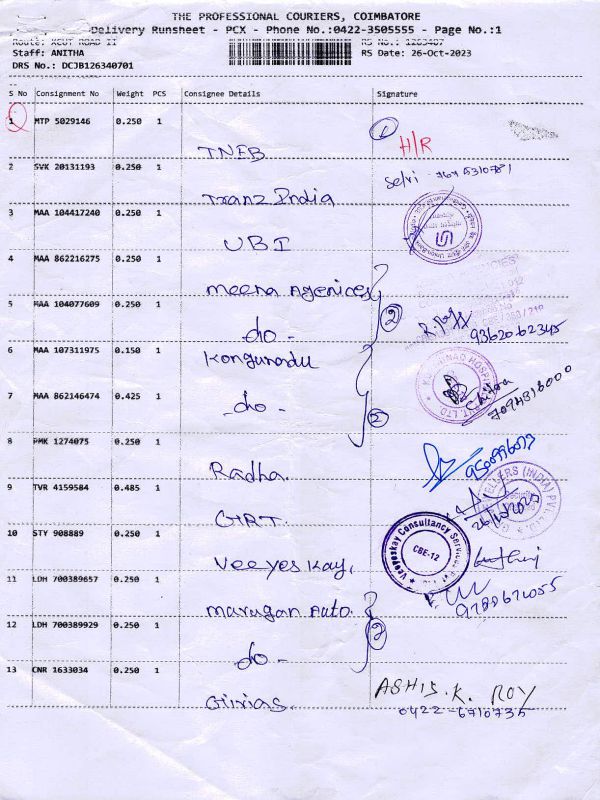 THE PROFESSIONAL COURIERS, COIMBATORE
Delivery Runsheet - PCX - Phone No.:0422-3505555 - Page No.:1
Route: XCUT ROAD II RS No.: 1263407
Staff: ANITHA RS Date: 26-Oct-2023
DRS No.: DCJB126340701
S No Consignment No Weight PCS Consignee Details Signature
1 MTP 5029146 0.250 1 1 H/R
TNEB
2 SVK 20131193 0.250 1 Selvi
Tranz India
3 MAA 104417240 0.250 1
UBI
4 MAA 862216275 0.250 1
Meena Agenices
5 MAA 104077609 0.250 1 2
do - 93620 62345
6 MAA 107311975 0.150 1
Kongunadu
7 MAA 862146474 0.425 1 Chitra
do - 2 7094316000
8 PMK 1274075 0.250 1
Radha.
9 TVR 4159584 0.485 1
GRT. 26/10/2023
10 STY 908889 0.250 1 Veeyeskay Consultancy Services
CBE-12
Veeyes Kay,
11 LDH 700389657 0.250 1
Marugan Auto.
12 LDH 700389929 0.250 1 2
do -
13 CNR 1633034 0.250 1 ASHIS. K. ROY
Girias. 0422-6710735